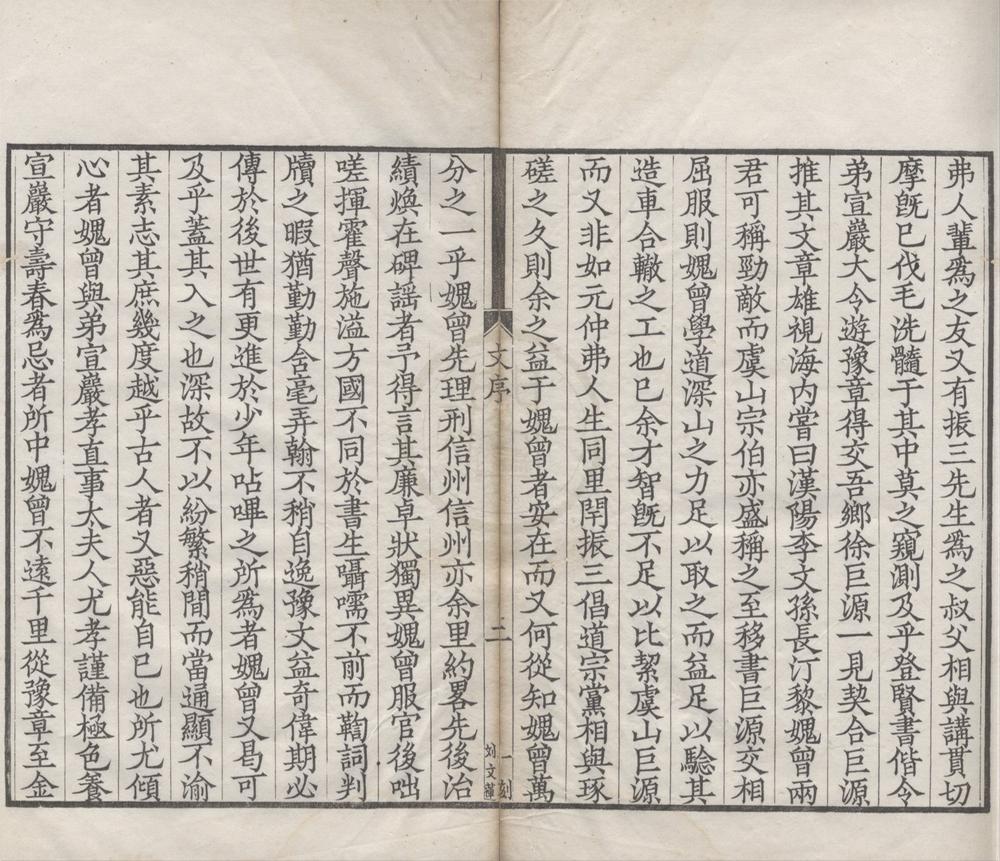 弗人輩爲之友又有振三先生爲之叔父相與講貫切
摩旣已伐毛洗髓于其中莫之窺測及乎登賢書偕令
弟宣巖大令遊豫章得交吾鄉徐巨源一見契合巨源
推其文章雄視海内嘗曰漢陽李文孫長汀黎媿曾兩
君可稱勁敵而虞山宗伯亦盛稱之至移書巨源交相
屈服則媿曾學道深山之力足以取之而益足以驗其
造車合轍之工也已余才智旣不足以比絜虞山巨源
而又非如元仲弗人生同里閈振三倡道宗黨相與琢
磋之久則余之益于媿曾者安在而又何從知媿曾萬
文序
二
一刻
刘文蓮
分之一乎媿曾先理刑信州信州亦余里約畧先後治
績煥在碑謡者予得言其廉卓狀獨異媿曾服官後咄
嗟揮霍聲施溢方國不同於書生囁嚅不前而鞫詞判
牘之暇猶勤勤含毫弄翰不稍自逸豫文益奇偉期必
傳於後世有更進於少年呫嗶之所爲者媿曾又曷可
及乎蓋其入之也深故不以紛繁稍間而當通顯不渝
其素志其庶幾度越乎古人者又惡能自已也所尤傾
心者媿曾與弟宣巖孝直事太夫人尤孝謹備極色養
宣巖守壽春爲忌者所中媿曾不遠千里從豫章至金